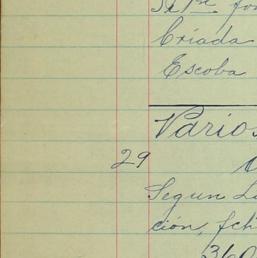 Criada
Escoba
Varios
29
Segun
ción, fch
360